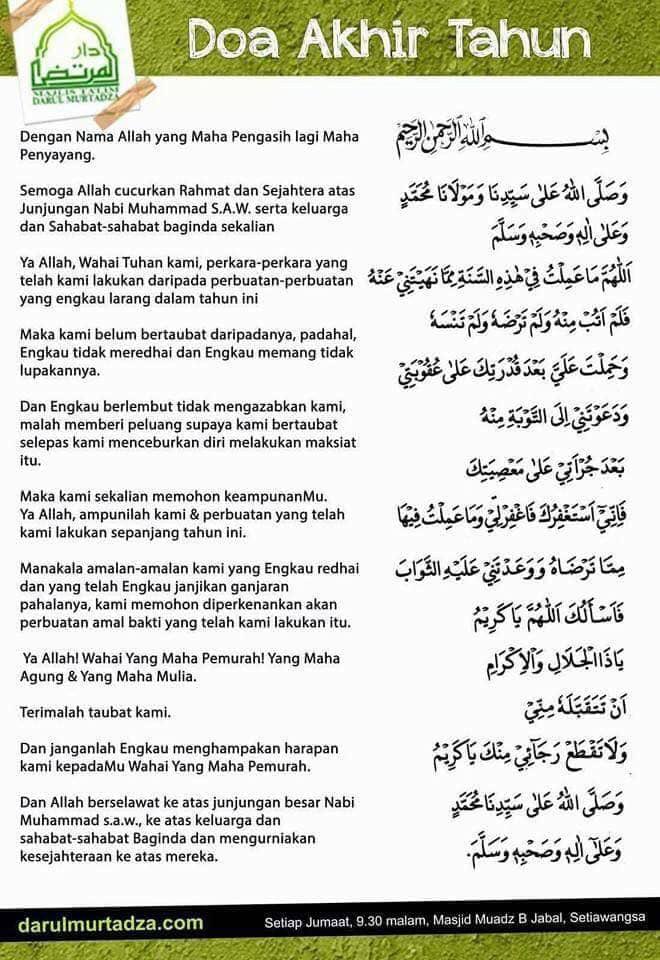 دار
المرتضى
MAJLIS TA'LIM
DARUL MURTADZA
Doa Akhir Tahun
Dengan Nama Allah yang Maha Pengasih lagi Maha
Penyayang.
Semoga Allah cucurkan Rahmat dan Sejahtera atas
Junjungan Nabi Muhammad S.A.W. serta keluarga
dan Sahabat-sahabat baginda sekalian
Ya Allah, Wahai Tuhan kami, perkara-perkara yang
telah kami lakukan daripada perbuatan-perbuatan
yang engkau larang dalam tahun ini
Maka kami belum bertaubat daripadanya, padahal,
Engkau tidak meredhai dan Engkau memang tidak
lupakannya.
Dan Engkau berlembut tidak mengazabkan kami,
malah memberi peluang supaya kami bertaubat
selepas kami menceburkan diri melakukan maksiat
itu.
Maka kami sekalian memohon keampunanMu.
Ya Allah, ampunilah kami & perbuatan yang telah
kami lakukan sepanjang tahun ini.
Manakala amalan-amalan kami yang Engkau redhai
dan yang telah Engkau janjikan ganjaran
pahalanya, kami memohon diperkenankan akan
perbuatan amal bakti yang telah kami lakukan itu.
Ya Allah! Wahai Yang Maha Pemurah! Yang Maha
Agung & Yang Maha Mulia.
Terimalah taubat kami.
Dan janganlah Engkau menghampakan harapan
kami kepadaMu Wahai Yang Maha Pemurah.
Dan Allah berselawat ke atas junjungan besar Nabi
Muhammad s.a.w., ke atas keluarga dan
sahabat-sahabat Baginda dan mengurniakan
kesejahteraan ke atas mereka.
بِسْمِ اللهِ الرَّحْمٰنِ الرَّحِيْمِ
وَصَلَّى اللهُ عَلٰى سَيِّدِنَا وَمَوْلَانَا مُحَمَّدٍ
وَعَلٰى اٰلِهٖ وَصَحْبِهٖ وَسَلَّمَ
اَللّٰهُمَّ مَا عَمِلْتُ فِيْ هٰذِهِ السَّنَةِ مِمَّا نَهَيْتَنِيْ عَنْهُ
فَلَمْ اَتُبْ مِنْهُ وَلَمْ تَرْضَهُ وَلَمْ تَنْسَهُ
وَحَمِلْتَ عَلَيَّ بَعْدَ قُدْرَتِكَ عَلٰى عُقُوْبَتِيْ
وَدَعَوْتَنِيْ اِلَى التَّوْبَةِ مِنْهُ
بَعْدَ جُرْاَتِيْ عَلٰى مَعْصِيَتِكَ
فَاِنِّيْ اَسْتَغْفِرُكَ فَاغْفِرْلِيْ وَمَا عَمِلْتُ فِيْهَا
مِمَّا تَرْضَاهُ وَوَعَدْتَنِيْ عَلَيْهِ الثَّوَابَ
فَاَسْأَلُكَ اَللّٰهُمَّ يَا كَرِيْمُ
يَا ذَا الْجَلَالِ وَالْاِكْرَامِ
اَنْ تَتَقَبَّلَهُ مِنِّيْ
وَلَا تَقْطَعْ رَجَائِيْ مِنْكَ يَا كَرِيْمُ
وَصَلَّى اللهُ عَلٰى سَيِّدِنَا مُحَمَّدٍ
وَعَلٰى اٰلِهٖ وَصَحْبِهٖ وَسَلَّمَ.
darulmurtadza.com
Setiap Jumaat, 9.30 malam, Masjid Muadz B Jabal, Setiawangsa